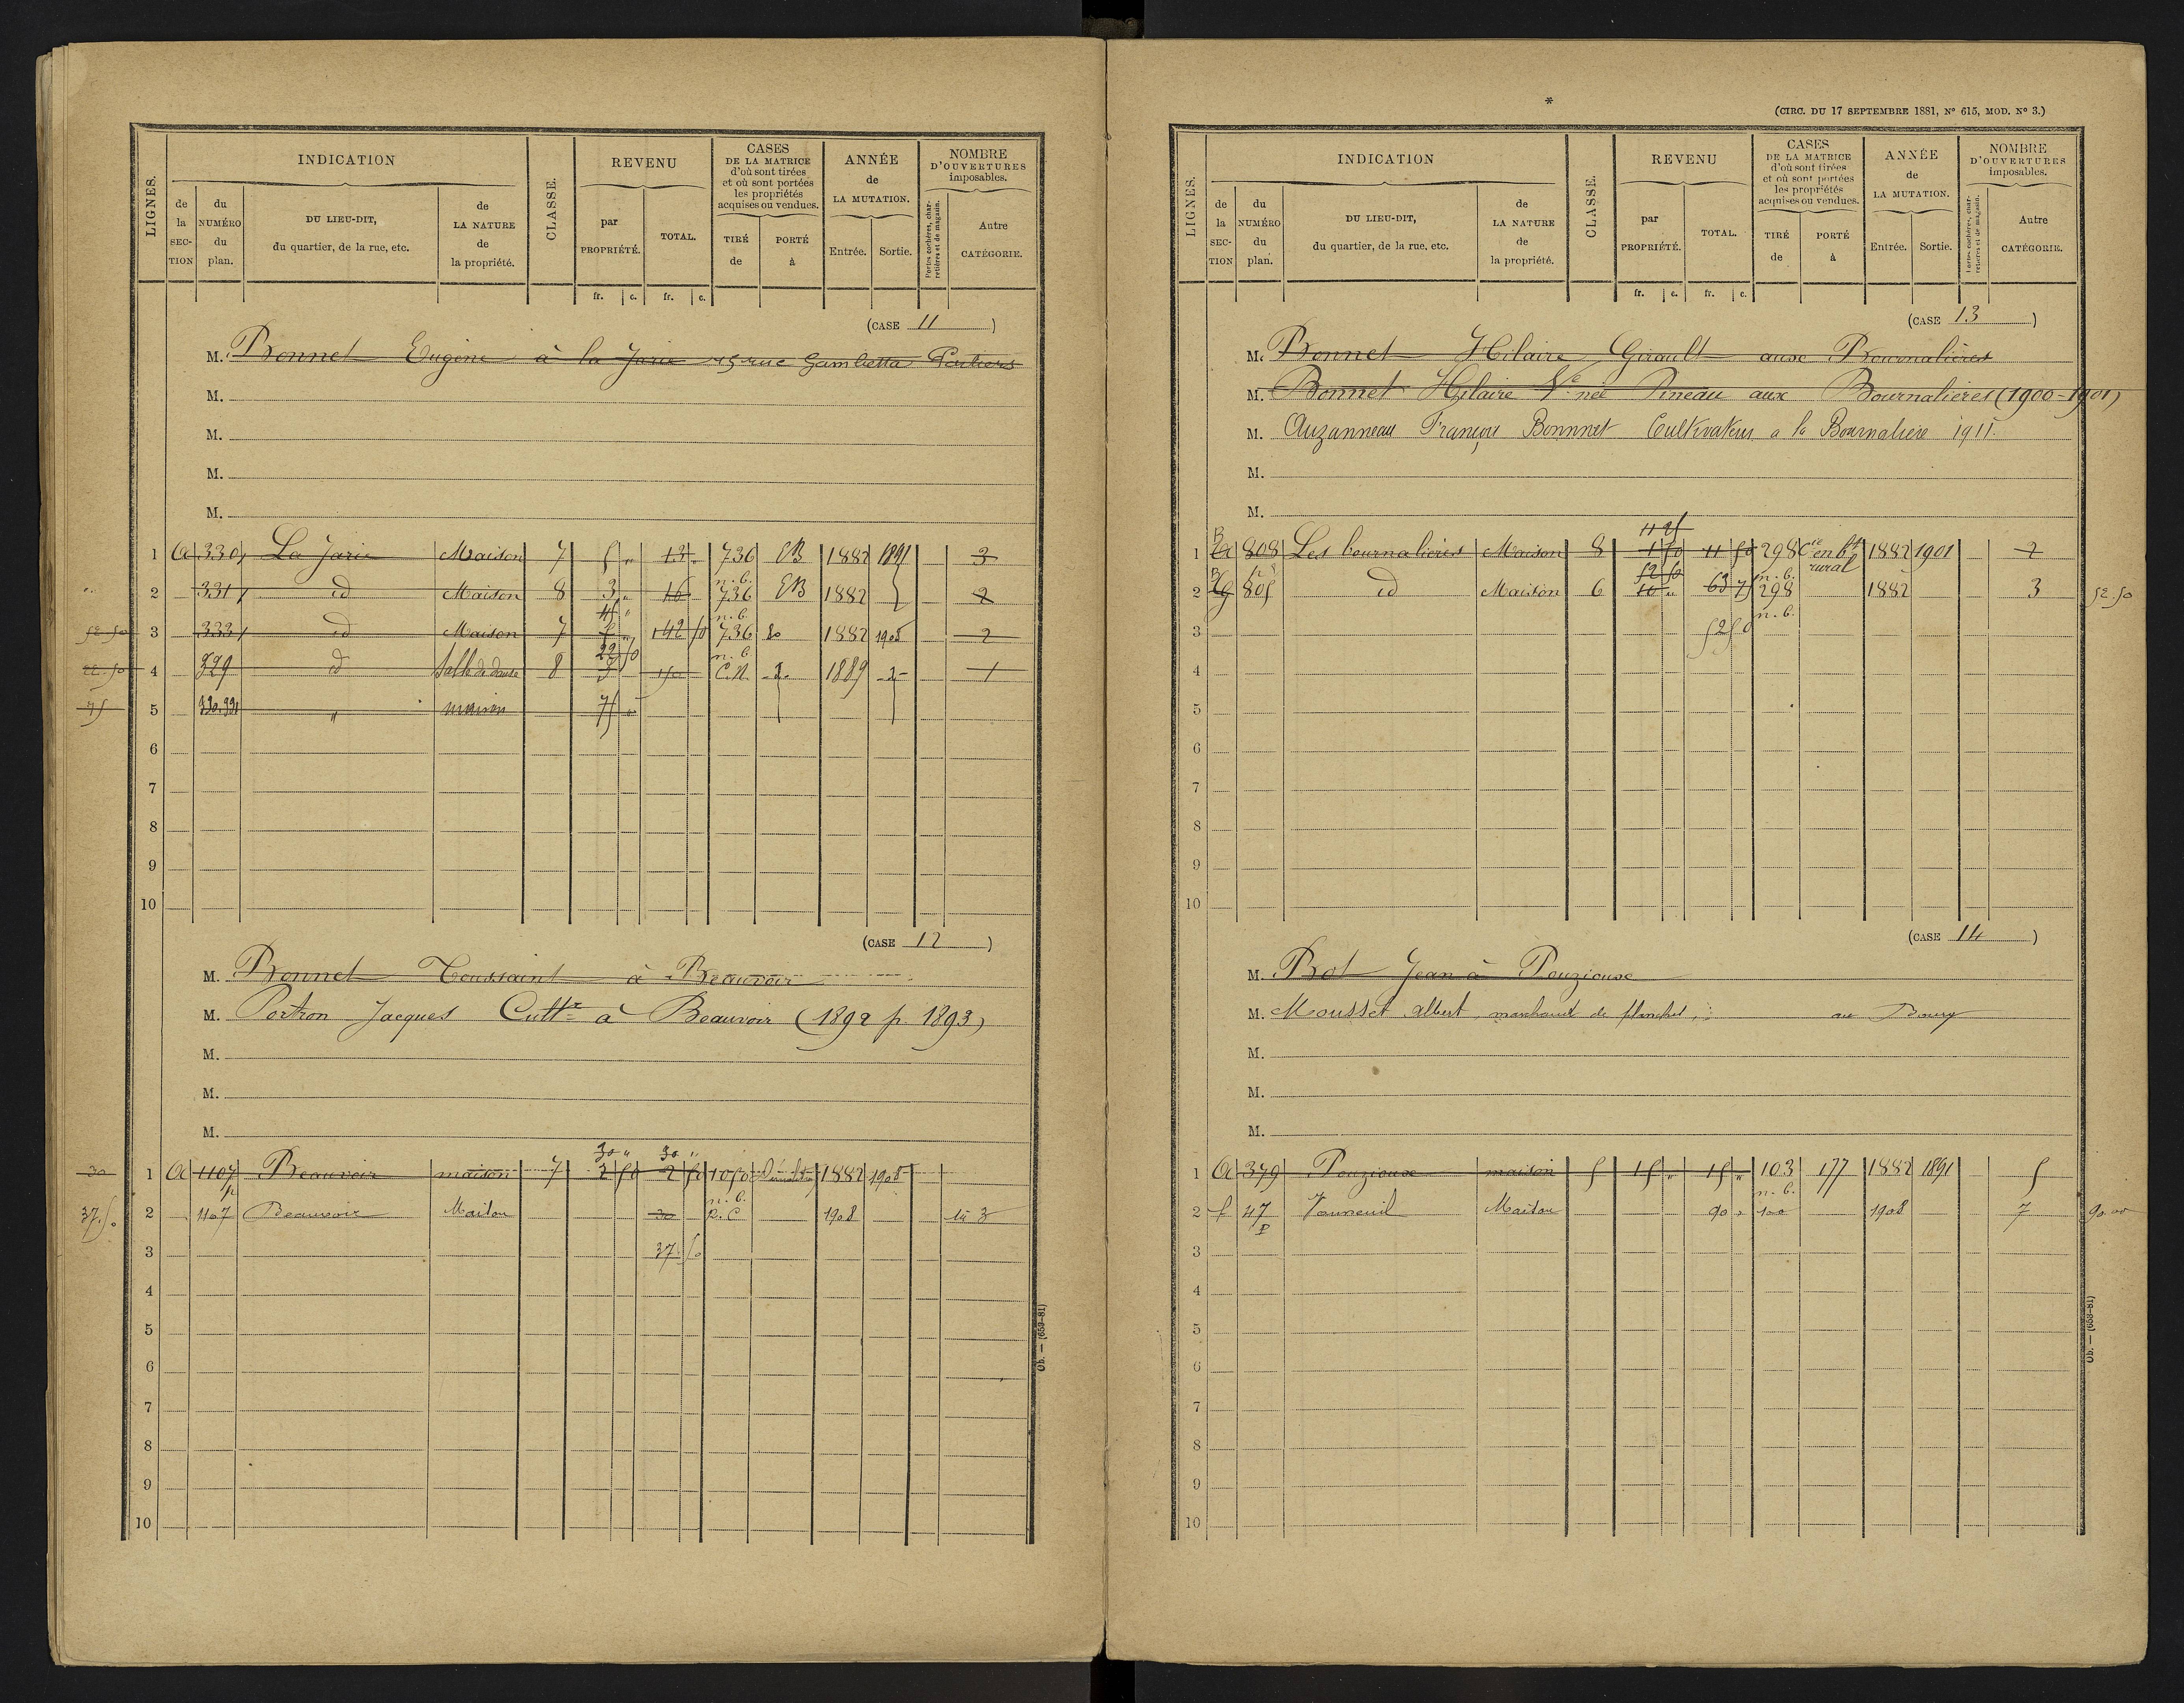 LIGNES.
INDICATION
de la SECTION
du NUMÉRO du plan.
DU LIEU-DIT, du quartier, de la rue, etc.
de LA NATURE de la propriété.
CLASSE.
REVENU
par PROPRIÉTÉ.
TOTAL.
CASES DE LA MATRICE d'où sont tirées et où sont portées les propriétés acquises ou vendues.
TIRÉ de
PORTÉ à
ANNÉE de LA MUTATION.
Entrée.
Sortie.
NOMBRE D'OUVERTURES imposables.
Portes cochères, charretières et de magasin.
Autre CATÉGORIE.
fr. c. fr. c.
(CASE 11)
M. Bonnet Eugène à la Jarie 15 rue Gambetta Poitiers
M.
M.
M.
M.
1 A 330 La Jarie Maison 7 5 " 13 " 736 EB 1882 1891 3
n. b.
2 331 id Maison 8 3 " 16 736 EB 1882 2
45 " n. b.
52.50 3 333 id Maison 7 142 50 736 1882 1908 2
22 50 n. b.
22.50 4 329 id Salle de danse 8 C.N. 1889 1
75 5 330.331 " maison 75
6
7
8
9
10
(CASE 12)
M. Bonnet Toussaint à Beauvoir
M. Portron Jacques Cultr à Beauvoir (1892 p. 1893)
M.
M.
M.
30 " 30 "
30 1 A 1107 Beauvoir maison 7 2 50 2 50 1050 Démolition 1882 1908
p n. b.
37.50 2 1107 Beauvoir Maison 30 R.C 1908 3
3 37 50
4
5
6
7
8
9
10
Ob. — (653-81)
*
(CIRC. DU 17 SEPTEMBRE 1881, N° 615, MOD. N° 3.)
LIGNES.
INDICATION
de la SECTION
du NUMÉRO du plan.
DU LIEU-DIT, du quartier, de la rue, etc.
de LA NATURE de la propriété.
CLASSE.
REVENU
par PROPRIÉTÉ.
TOTAL.
CASES DE LA MATRICE d'où sont tirées et où sont portées les propriétés acquises ou vendues.
TIRÉ de
PORTÉ à
ANNÉE de LA MUTATION.
Entrée.
Sortie.
NOMBRE D'OUVERTURES imposables.
Portes cochères, charretières et de magasin.
Autre CATÉGORIE.
fr. c. fr. c.
(CASE 13)
M. Bonnet Hilaire Girault aux Bournalières
M. Bonnet Hilaire Ve née Pineau aux Bournalières (1900-1901)
M. Auzanneau François Bonnnet Cultivateur a la Bournalière 1911.
M.
M.
11 25
B
1 808 Les bournalieres Maison 8 1 50 11 50 298 Cie en bt rural 1882 1901 2
B 52 50 n. b.
2 805 id Maison 6 10 " 63 75 298 1882 3 52.50
n. b.
3 52 50
4
5
6
7
8
9
10
(CASE 14)
M. Bot Jean à Pouziouse
M. Mousset Albert, marchand de planches, au Bourg
M.
M.
M.
1 A 379 Pouziouse maison 5 15 " 15 " 103 177 1882 1891 5
n. b.
2 f 47 Vouneuil Maison 90 " 100 1908 7 90.00
P
3
4
5
6
7
8
9
10
Ob. — (653-81)